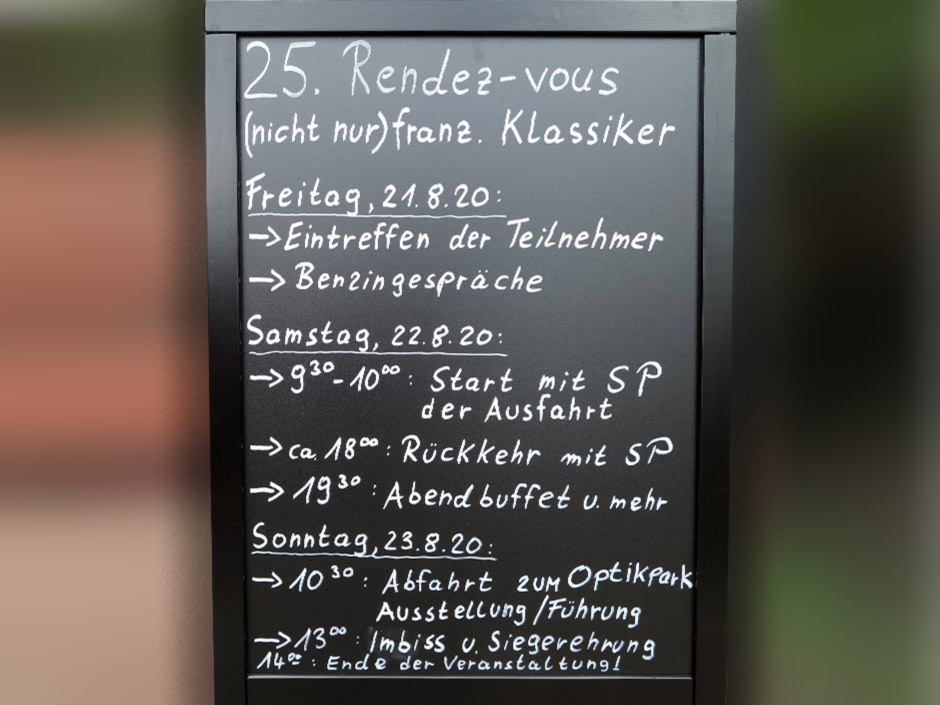 25. Rendez-vous
(nicht nur) franz. Klassiker
Freitag, 21.8.20:
→ Eintreffen der Teilnehmer
→ Benzingespräche
Samstag, 22.8.20:
→ 9³⁰-10⁰⁰: Start mit SP
der Ausfahrt
→ ca. 18⁰⁰: Rückkehr mit SP
→ 19³⁰: Abendbuffet u. mehr
Sonntag, 23.8.20:
→ 10³⁰: Abfahrt zum Optikpark
Ausstellung/Führung
→ 13⁰⁰: Imbiss u. Siegerehrung
14⁰⁰: Ende der Veranstaltung!